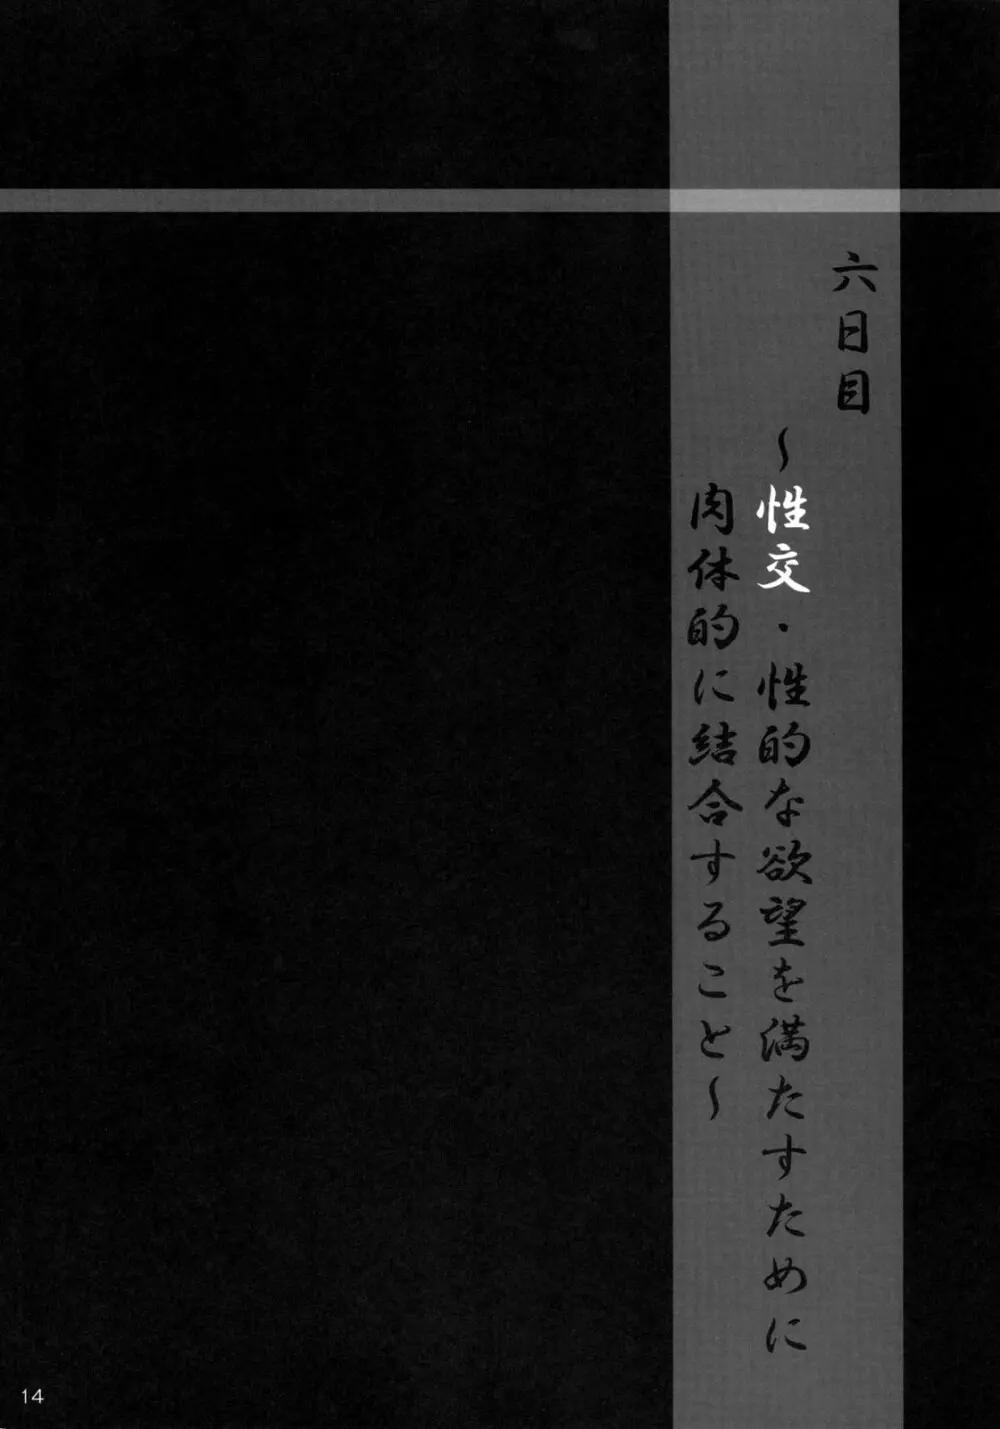 六日目
~性交・性的な欲望を満たすために
肉体的に結合すること~
14